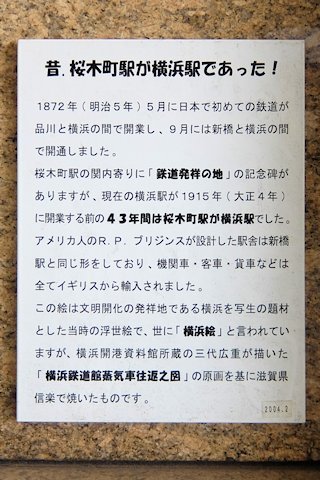 昔．桜木町駅が横浜駅であった！
1872年（明治５年）５月に日本で初めての鉄道が
品川と横浜の間で開業し、９月には新橋と横浜の間
で開通しました。
桜木町駅の関内寄りに「鉄道発祥の地」の記念碑が
ありますが、現在の横浜駅が1915年（大正４年）
に開業する前の４３年間は桜木町駅が横浜駅でした。
アメリカ人のR．P．ブリジンスが設計した駅舎は新橋
駅と同じ形をしており、機関車・客車・貨車などは
全てイギリスから輸入されました。
この絵は文明開化の発祥地である横浜を写生の題材
とした当時の浮世絵で、世に「横浜絵」と言われてい
ますが、横浜開港資料館所蔵の三代広重が描いた
「横浜鉄道館蒸気車往返之図」の原画を基に滋賀県
信楽で焼いたものです。
2004.2